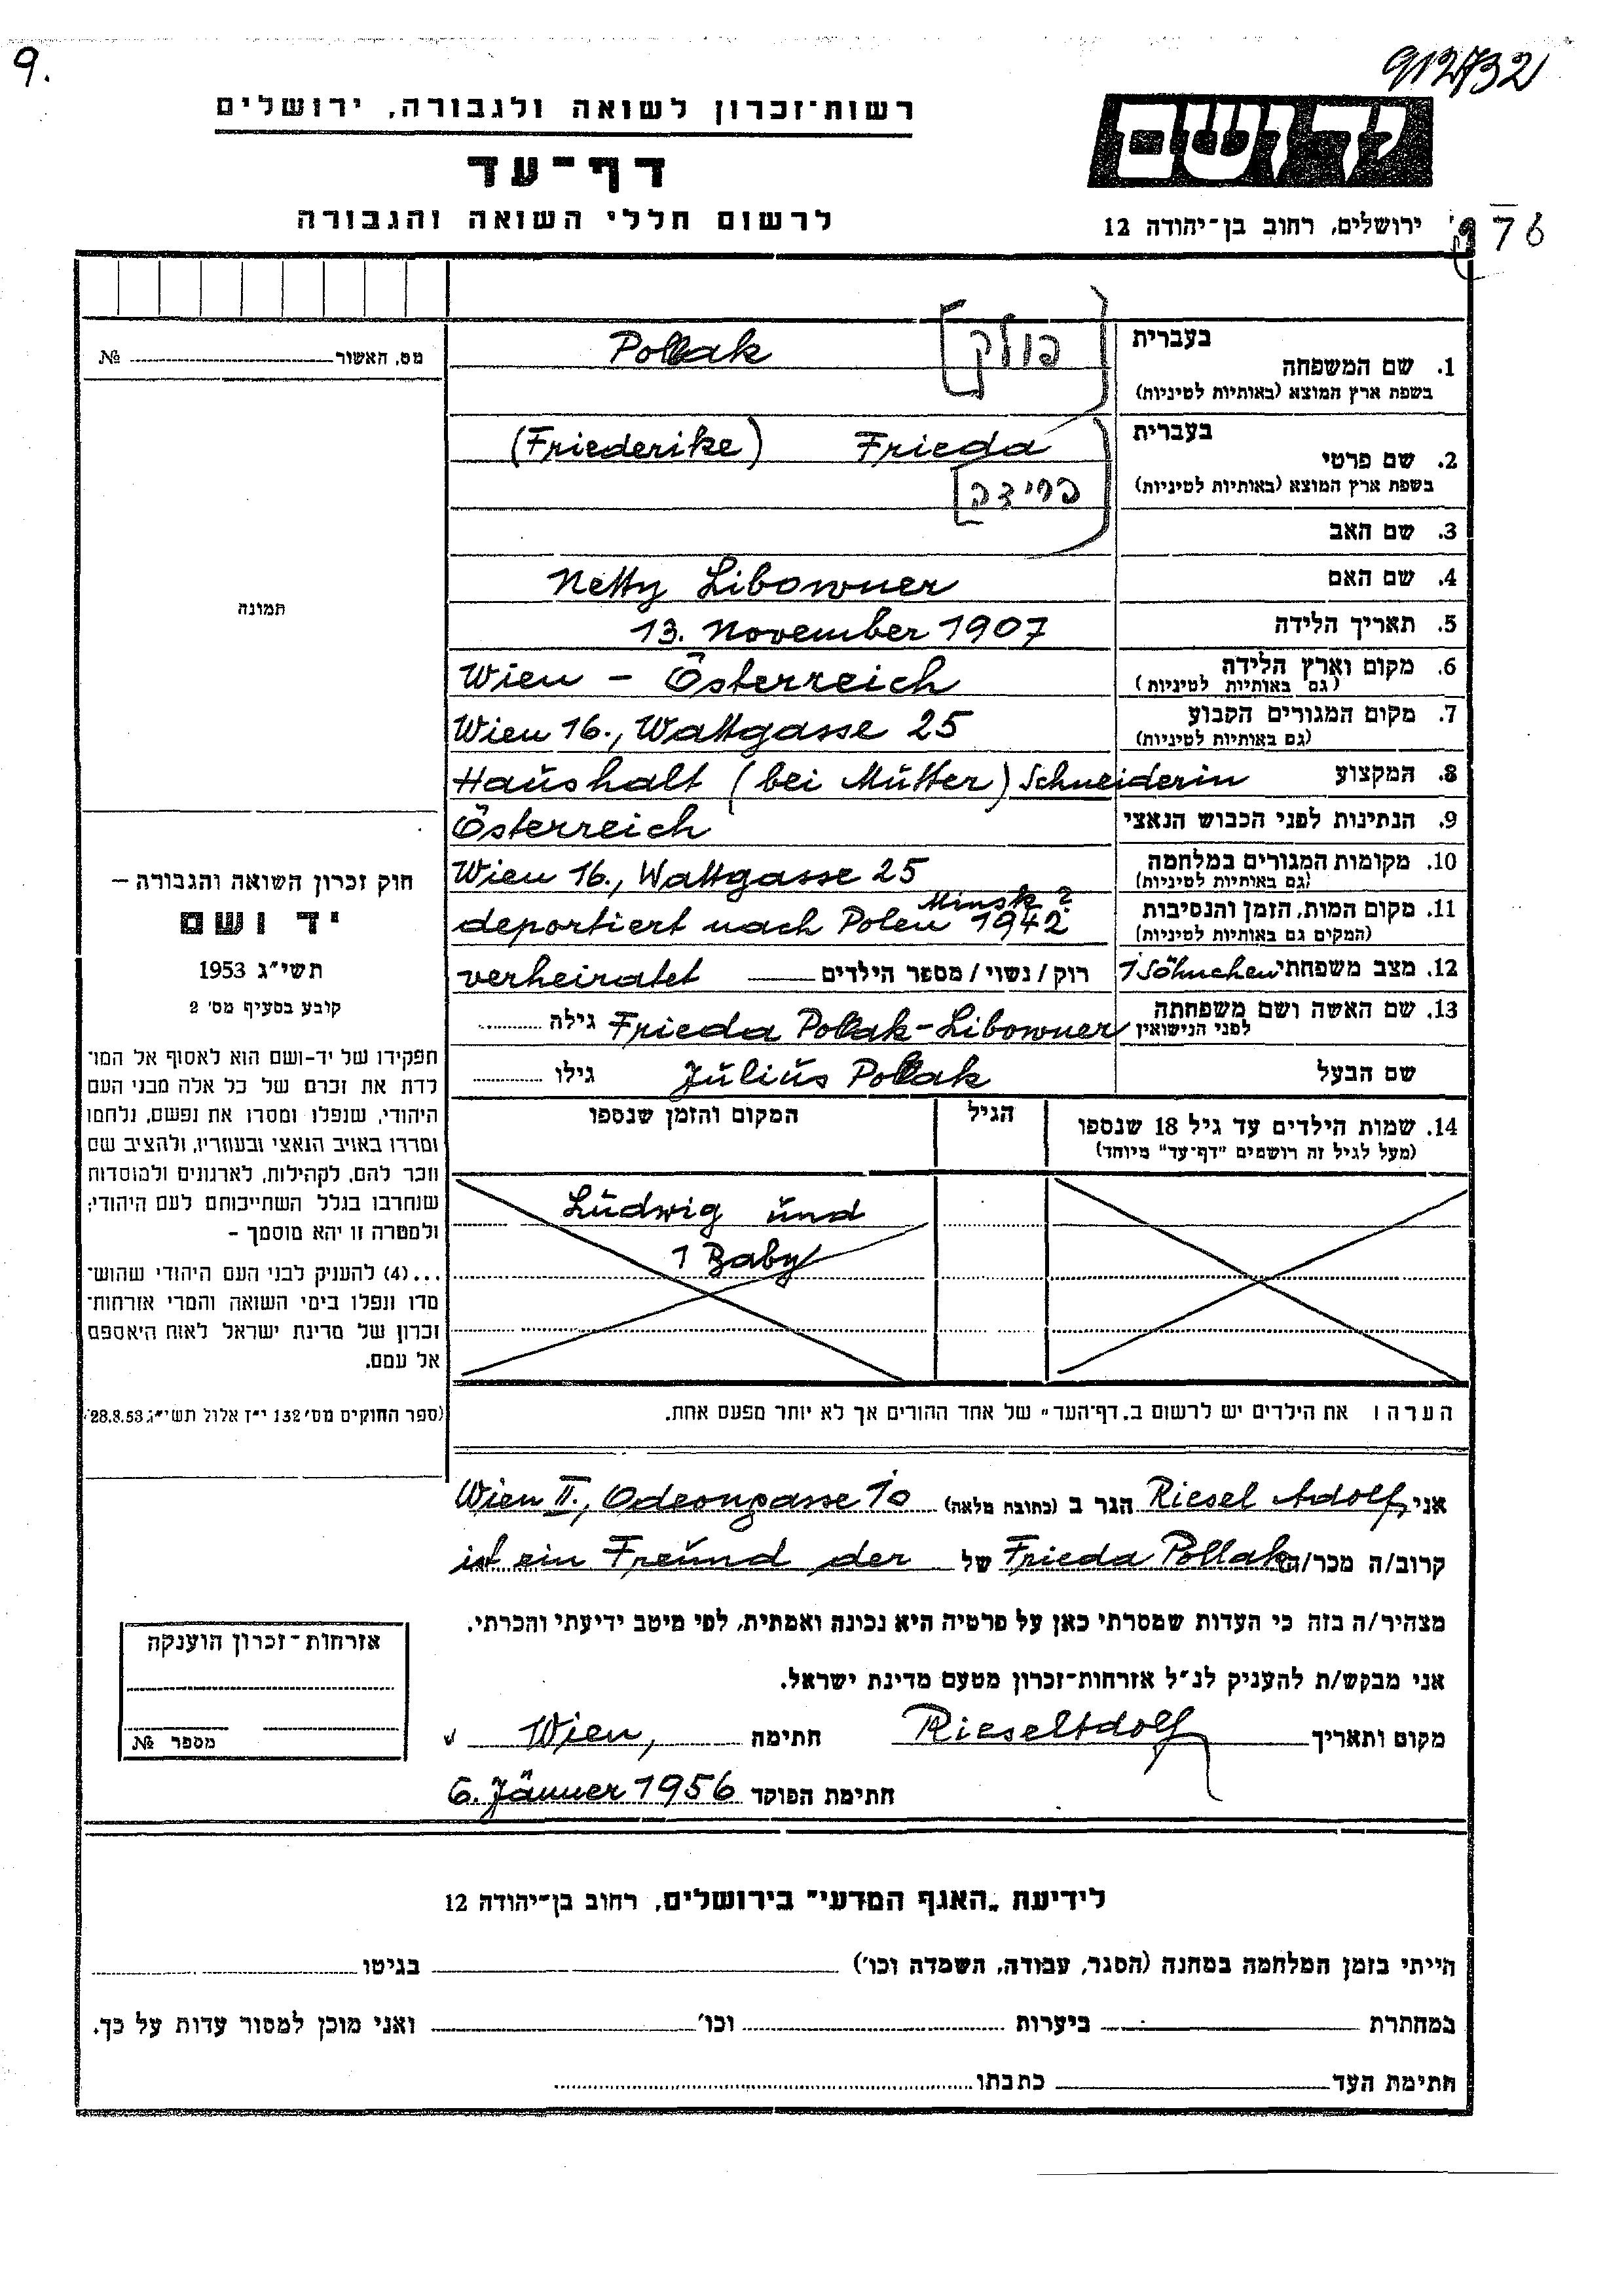 9.
912732
רשות־זכרון לשואה ולגבורה, ירושלים
ידושם
דף־עד
לרשום חללי השואה והגבורה
ירושלים, רחוב בן־יהודה 12
976
מס. האשור № 
תמונה
חוק זכרון השואה והגבורה –
יד ושם
תשי״ג 1953
קובע בסעיף מס׳ 2
תפקידו של יד-ושם הוא לאסוף אל המו־
לדת את זכרם של כל אלה מבני העם
היהודי, שנפלו ומסרו את נפשם, נלחמו
ומרדו באויב הנאצי ובעוזריו, ולהציב שם
וזכר להם, לקהילות, לארגונים ולמוסדות
שנחרבו בגלל השתייכותם לעם היהודי;
ולמטרה זו יהא מוסמך –
...(4) להעניק לבני העם היהודי שהוש־
מדו ונפלו בימי השואה והמרי אזרחות־
זכרון של מדינת ישראל לאות היאספם
אל עמם.
(ספר החוקים מס׳ 132 י״ז אלול תשי״ג 28.8.53)
בעברית [פולק] Pollak
1. שם המשפחה
בשפת ארץ המוצא (באותיות לטיניות)
בעברית Frieda (Friederike)
2. שם פרטי
בשפת ארץ המוצא (באותיות לטיניות) [פרידה]
3. שם האב
4. שם האם Netty Libowner
5. תאריך הלידה 13. November 1907
6. מקום וארץ הלידה Wien – Österreich
(גם באותיות לטיניות)
7. מקום המגורים הקבוע Wien 16., Wattgasse 25
(גם באותיות לטיניות)
8. המקצוע Haushalt (bei Mutter) Schneiderin
9. הנתינות לפני הכבוש הנאצי Österreich
10. מקומות המגורים במלחמה Wien 16., Wattgasse 25
(גם באותיות לטיניות)
Minsk?
11. מקום המות, הזמן והנסיבות deportiert nach Polen 1942
(המקום גם באותיות לטיניות)
12. מצב משפחתי 1 Söhnchen רוק/נשוי/מספר הילדים verheiratet
13. שם האשה ושם משפחתה
לפני הנישואין Frieda Pollak-Libowner גילה
שם הבעל Julius Pollak גילו
14. שמות הילדים עד גיל 18 שנספו הגיל המקום והזמן שנספו
(מעל לגיל זה רושמים "דף־עד" מיוחד)
Ludwig und
1 Baby
הערה ׃ את הילדים יש לרשום ב„דף־העד״ של אחד ההורים אך לא יותר מפעם אחת.
אני Riesel Adolf, הגר ב (כתובת מלאה) Wien II., Odeongasse 10
קרוב/ה מכר/ה Frieda Pollak של ist ein Freund der
מצהיר/ה בזה כי העדות שמסרתי כאן על פרטיה היא נכונה ואמתית, לפי מיטב ידיעתי והכרתי.
אני מבקש/ת להעניק לנ״ל אזרחות־זכרון מטעם מדינת ישראל.
מקום ותאריך Riesel Adolf חתימה Wien,
חתימת הפוקד 6. Jänner 1956
אזרחות־זכרון הוענקה
מספר №
לידיעת „האגף המדעי״ בירושלים, רחוב בן־יהודה 12
הייתי בזמן המלחמה במחנה (הסגר, עבודה, השמדה וכו׳) בגיטו
במחתרת ביערות וכו׳ ואני מוכן למסור עדות על כך.
חתימת העד כתבתו